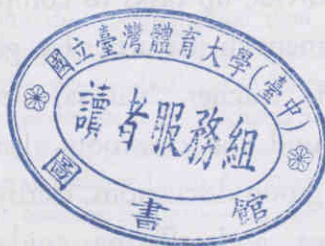 國立臺灣體育大學(臺中)
讀者服務組
圖書館